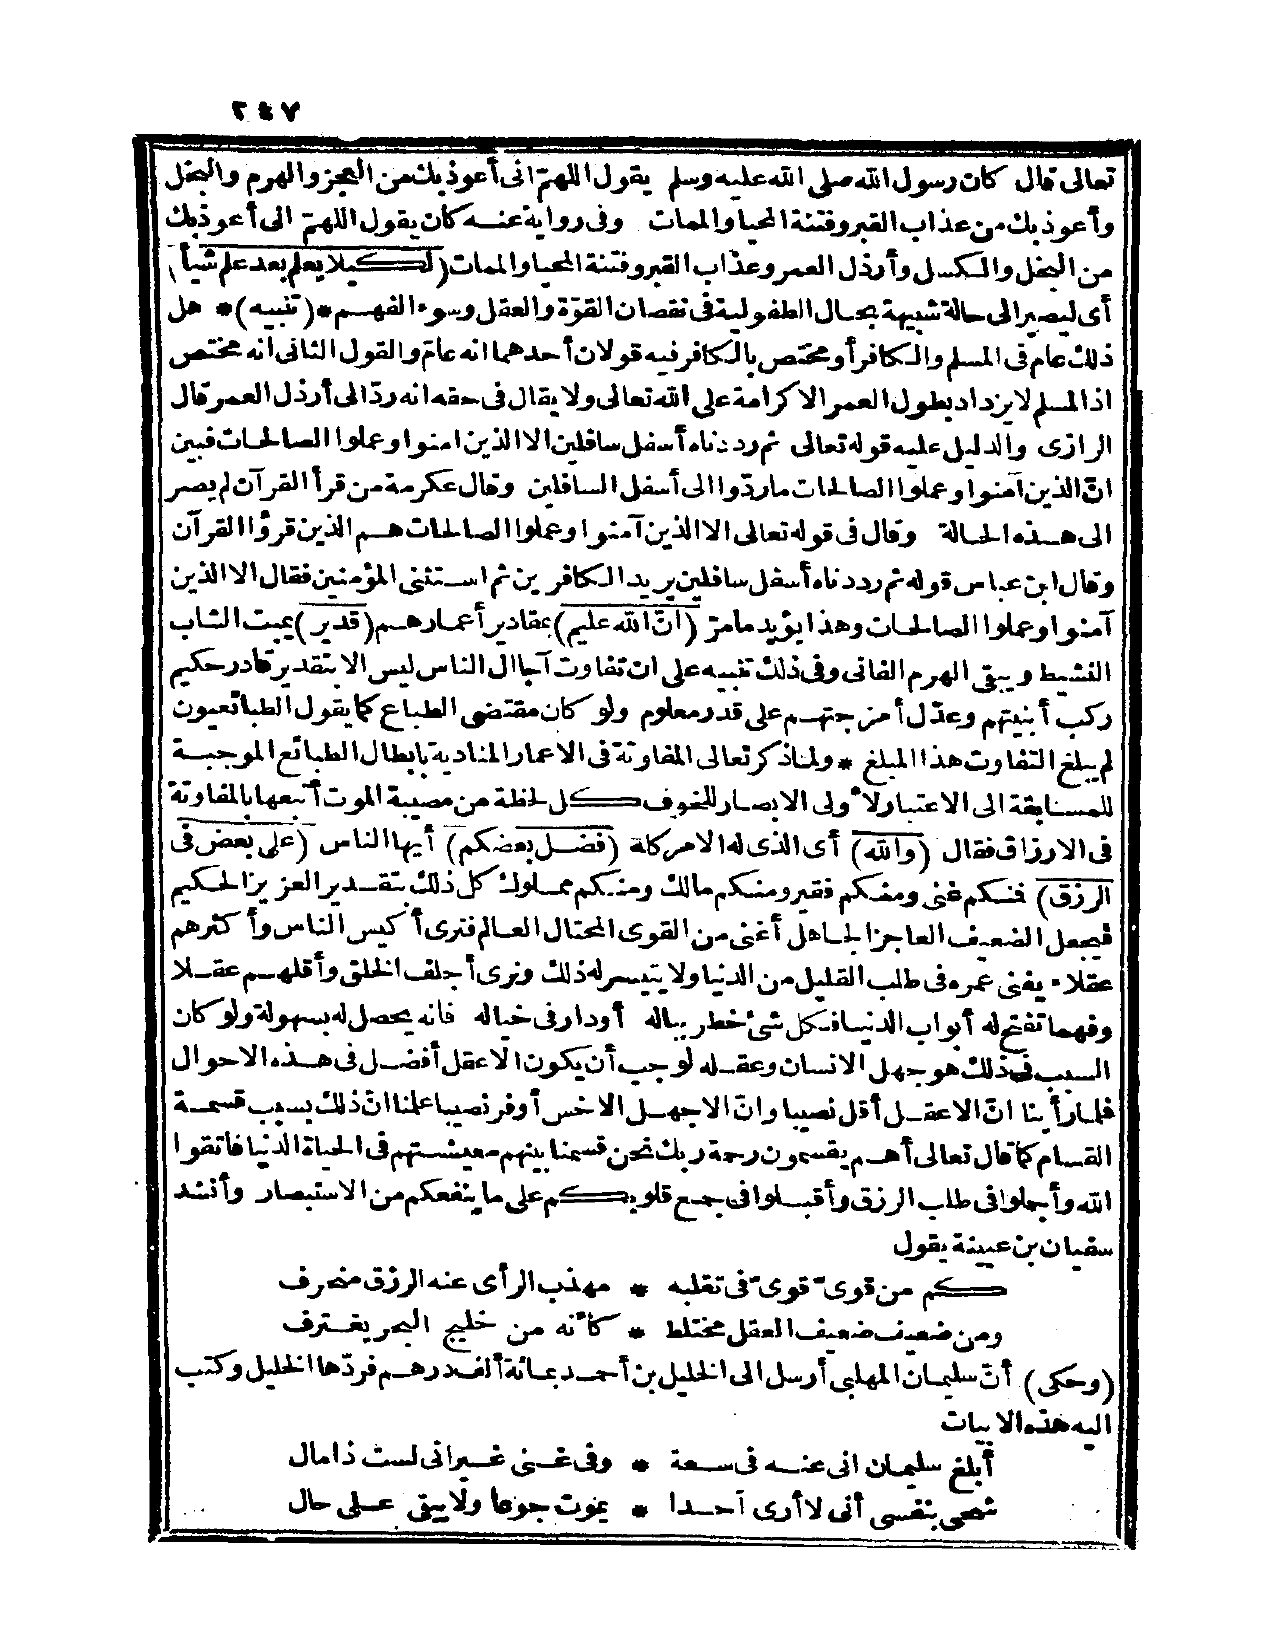 ٢٤٧
تعالى قال كان رسول الله صلى الله عليه وسلم يقول اللهم انى أعوذ بك من العجز والهرم والبخل
وأعوذ بك من عذاب القبر وفتنة المحيا والممات وفى رواية عنه كان يقول اللهم انى أعوذ بك
من البخل والكسل وأرذل العمر وعذاب القبر وفتنة المحيا والممات (لكيلا يعلم بعد علم شيأ)
أى ليصير الى حالة شبيهة بحال الطفولية فى نقصان القوّة والعقل وسوء الفهم *(تنبيه)* هل
ذلك عام فى المسلم والكافر أو مختص بالكافر فيه قولان أحدهما انه عام والقول الثانى انه مختص
اذ المسلم لا يزداد بطول العمر الا كرامة على الله تعالى ولا يقال فى حقه انه ردّ الى أرذل العمر قال
الرازى والدليل عليه قوله تعالى ثم رددناه أسفل سافلين الا الذين امنوا وعملوا الصالحات فبين
انّ الذين آمنوا وعملوا الصالحات ما ردّوا الى أسفل السافلين وقال عكرمة من قرأ القرآن لم يصر
الى هذه الحالة وقال فى قوله تعالى الا الذين آمنوا وعملوا الصالحات هم الذين قرؤا القرآن
وقال ابن عباس قوله ثم رددناه أسفل سافلين يريد الكافرين ثم استثنى المؤمنين فقال الا الذين
آمنوا وعملوا الصالحات وهذا يؤيد ما مرّ (انّ الله عليم) بمقادير أعمارهم (قدير) يميت الشاب
النشيط ويبقى الهرم الفانى وفى ذلك تنبيه على ان تفاوت آجال الناس ليس الا بتقدير قادر حكيم
ركب أبنيتهم وعدّل أمزجتهم على قدر معلوم ولو كان مقتضى الطباع كما يقول الطبائعيون
لم يبلغ التفاوت هذا المبلغ * ولما ذكر تعالى المفاوتة فى الاعمار المنادية بابطال الطبائع الموجبة
للمسابقة الى الاعتبار لاولى الابصار للخوف كل لحظة من مصيبة الموت أتبعها بالمفاوتة
فى الارزاق فقال (والله) أى الذى له الامر كله (فضل بعضكم) أيها الناس (على بعض فى
الرزق) فمنكم غنى ومنكم فقير ومنكم مالك ومنكم مملوك كل ذلك بتقدير العزيز الحكيم
فيجعل الضعيف العاجز الجاهل أغنى من القوى المحتال العالم فترى أكيس الناس وأكثرهم
عقلا يفنى عمره فى طلب القليل من الدنيا ولا يتيسر له ذلك وترى أجلف الخلق وأقلهم عقلا
وفهما تفتح له أبواب الدنيا فكل شئ خطر بباله أو دار فى خياله فانه يحصل له بسهولة ولو كان
السبب فى ذلك هو جهل الانسان وعقله لوجب أن يكون الاعقل أفضل فى هذه الاحوال
فلما رأينا انّ الاعقل أقل نصيبا وانّ الاجهل الاخس أوفر نصيبا علمنا انّ ذلك بسبب قسمة
القسام كما قال تعالى أهم يقسمون رحمة ربك نحن قسمنا بينهم معيشتهم فى الحياة الدنيا فاتقوا
الله وأجملوا فى طلب الرزق وأقبلوا فى جمع قلوبكم على ما ينفعكم من الاستبصار وأنشد
سفيان بن عيينة يقول
كم من قوىّ قوىّ فى تقلبه * مهذب الرأى عنه الرزق منحرف
ومن ضعيف ضعيف العقل مختلط * كأنه من خليج البحر يغترف
(وحكى) أنّ سليمان المهلبى أرسل الى الخليل بن أحمد بمائة ألف درهم فردّها الخليل وكتب
اليه هذه الابيات
أبلغ سليمان انى عنه فى سعة * وفى غنى غير انى لست ذا مال
شحى بنفسى أنى لا أرى أحدا * يموت جوعا ولا يبقى على حال